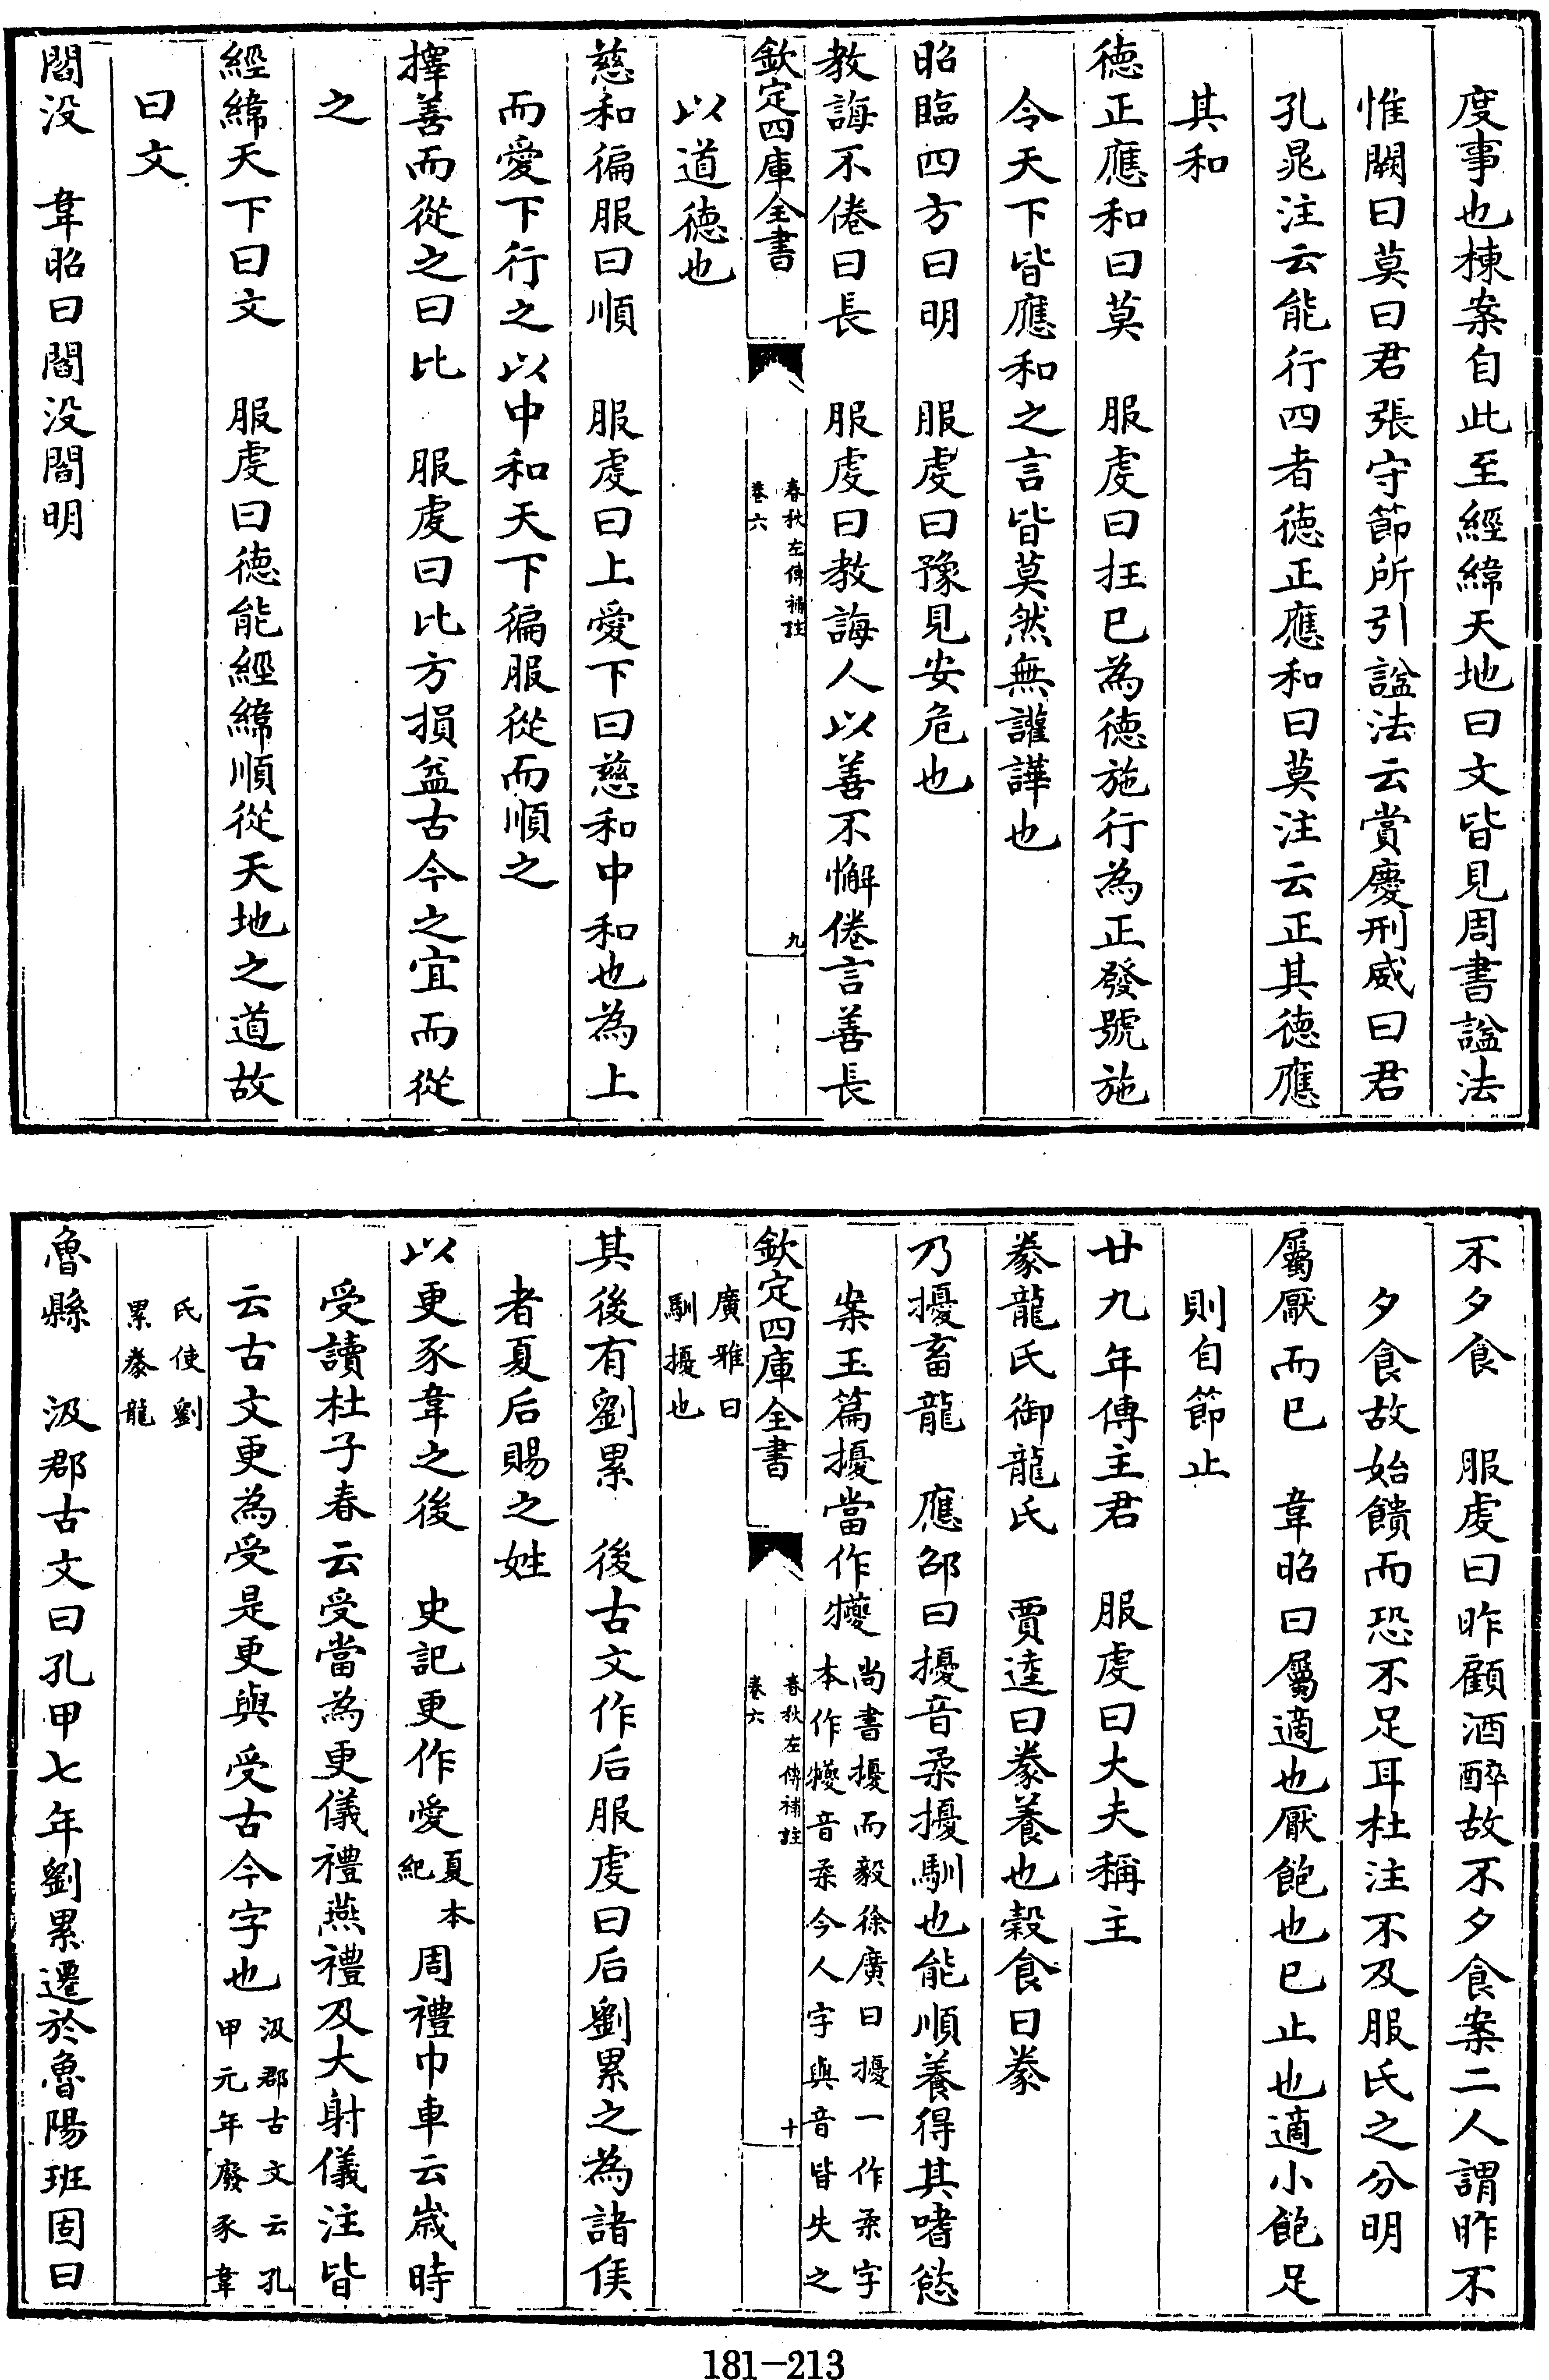 度事也棟案自此至經緯天地曰文皆見周書諡法
惟闕曰莫曰君張守節所引諡法云賞慶刑威曰君
孔晁注云能行四者德正應和曰莫注云正其德應
其和
德正應和曰莫　服虔曰抂已為德施行為正發號施
令天下皆應和之言皆莫然無讙譁也
昭臨四方曰明　服虔曰豫見安危也
教誨不倦曰長　服虔曰教誨人以善不懈倦言善長
欽定四庫全書
春秋左傳補註
卷六
九
以道德也
慈和徧服曰順　服虔曰上愛下曰慈和中和也為上
而愛下行之以中和天下徧服從而順之
擇善而從之曰比　服虔曰比方損益古今之宜而從
之
經緯天下曰文　服虔曰德能經緯順從天地之道故
曰文
閻没　韋昭曰閻没閻明
不夕食　服虔曰昨顧酒醉故不夕食案二人謂昨不
夕食故始饋而恐不足耳杜注不及服氏之分明
屬厭而已　韋昭曰屬適也厭飽也已止也適小飽足
則自節止
廿九年傳主君　服虔曰大夫稱主
豢龍氏御龍氏　賈逵曰豢養也穀食曰豢
乃擾畜龍　應邵曰擾音柔擾馴也能順養得其嗜慾
案玉篇擾當作㹛尚書擾而毅徐廣曰擾一作柔字
本作㹛音柔今人字與音皆失之
欽定四庫全書
春秋左傳補註
卷六
十
廣雅曰
馴擾也
其後有劉累　後古文作后服虔曰后劉累之為諸侯
者夏后賜之姓
以更豕韋之後　史記更作受夏本
紀周禮巾車云嵗時
受讀杜子春云受當為更儀禮燕禮及大射儀注皆
云古文更為受是更與受古今字也汲郡古文云孔
甲元年廢豕韋
氏使劉
累豢龍
魯縣　汲郡古文曰孔甲七年劉累遷於魯陽班固曰
181-213